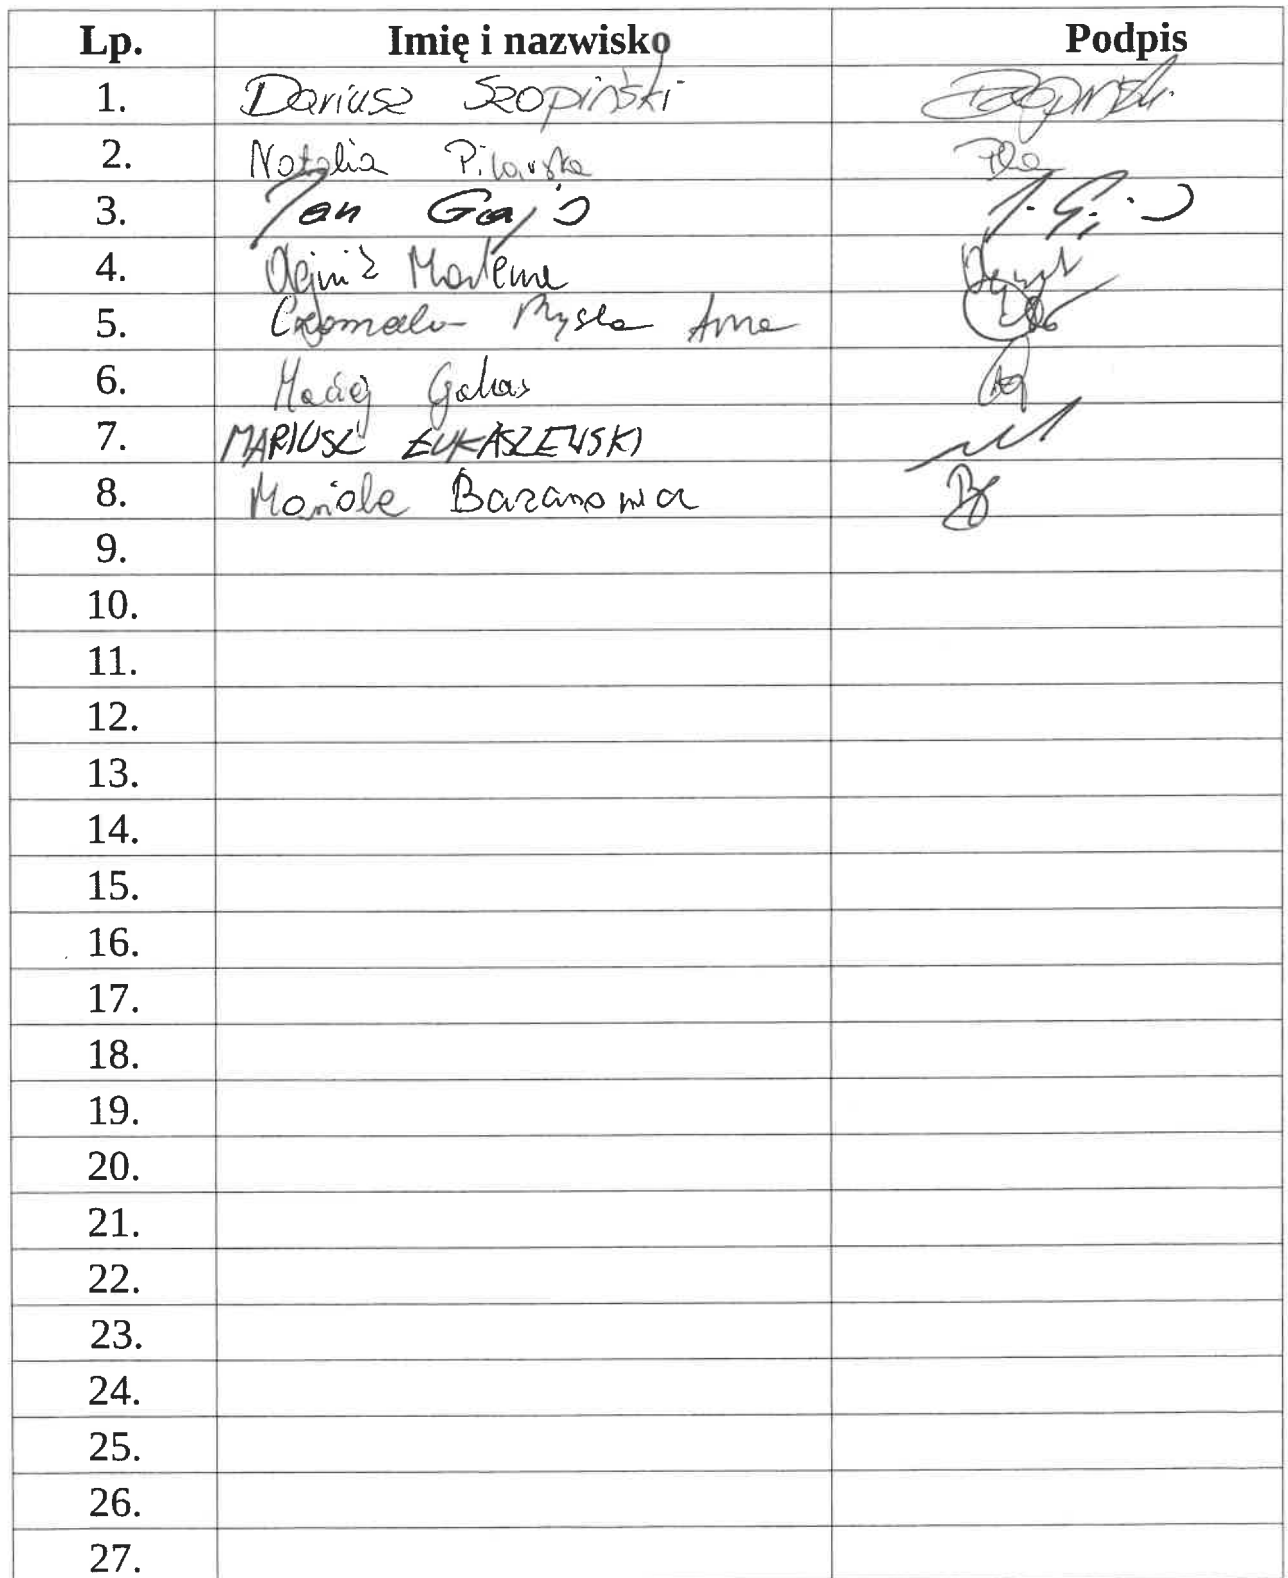 Lp. Imię i nazwisko Podpis
1. Dariusz Szopiński
2. Natalia Pilarska
3. Jan Gaj
4. Marlena
5. Mysła Anna
6. Maciej Gakas
7. MARIUSZ ŁUKASZEWSKI
8. Mariola
9.
10.
11.
12.
13.
14.
15.
16.
17.
18.
19.
20.
21.
22.
23.
24.
25.
26.
27.